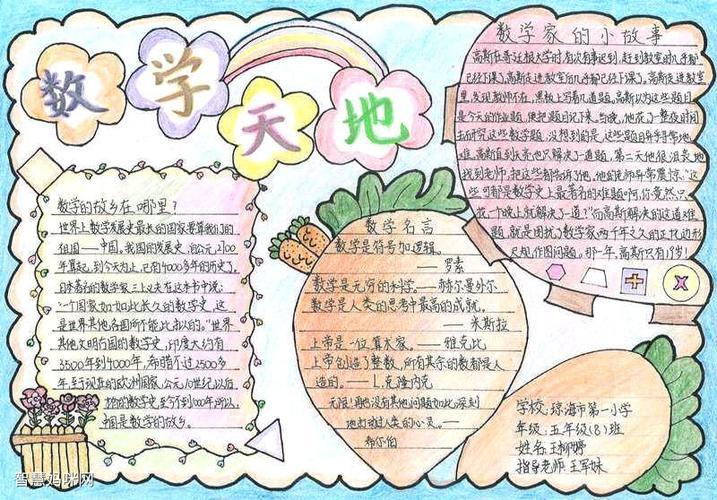 数学天地
数学的故乡在哪里？
世界上数学发展史最长的国家要算我们的
祖国——中国。我国的发展史，自公元2700
年算起，到今天为止，已有4000多年的历史了。
日本著名的数学家三上义夫在这本书中说：
"一个国家如此长久的数学史，这
是世界其他各国所能比拟的。"世界
其他文明古国的数学史，印度大约有
3500年到4000年，希腊不过2500多
年，至于现在的欧洲国家，公元10世纪以后
的数学史，至今不到1000年，所以，
中国是数学的故乡。
数学名言
数学是符号加逻辑。
——罗素
数学是无穷的科学。——赫尔曼外尔
数学是人类的思考中最高的成就。
——米斯拉
上帝是一位算术家。——雅克比
上帝创造了整数，所有其余的数都是人
造的。——L·克隆内克
无限！再也没有其他问题如此深刻
地打动过人类的心灵。——
希尔伯
数学家的小故事
高斯在哥廷根大学时，有次有事迟到，赶到教室时几乎都
已经下课了。高斯走进教室后几乎都已经下课了，高斯走进教室
里，发现教师不在，黑板上写着几道题。高斯以为这些题目
是今天的作业题，便把题目记下来。当晚，他花了整夜时间
去研究这些数学题，没想到的是，这些题目异乎寻常地
难，高斯直到天亮也只解决了一道题，第二天他很沮丧地
找到老师，把这些都告诉了他，他的老师异常震惊："这
些可都是数学史上最著名的难题啊，你竟然只
花一个晚上就解决了一道？"而高斯解决的这道难
题，就是困扰了数学家两千年之久的正十七边形
尺规作图问题。那一年，高斯只有18岁！
学校：琼海市第一小学
年级：五年级(8)班
姓名：王柳婷
指导老师：王军妹
智慧妈咪网